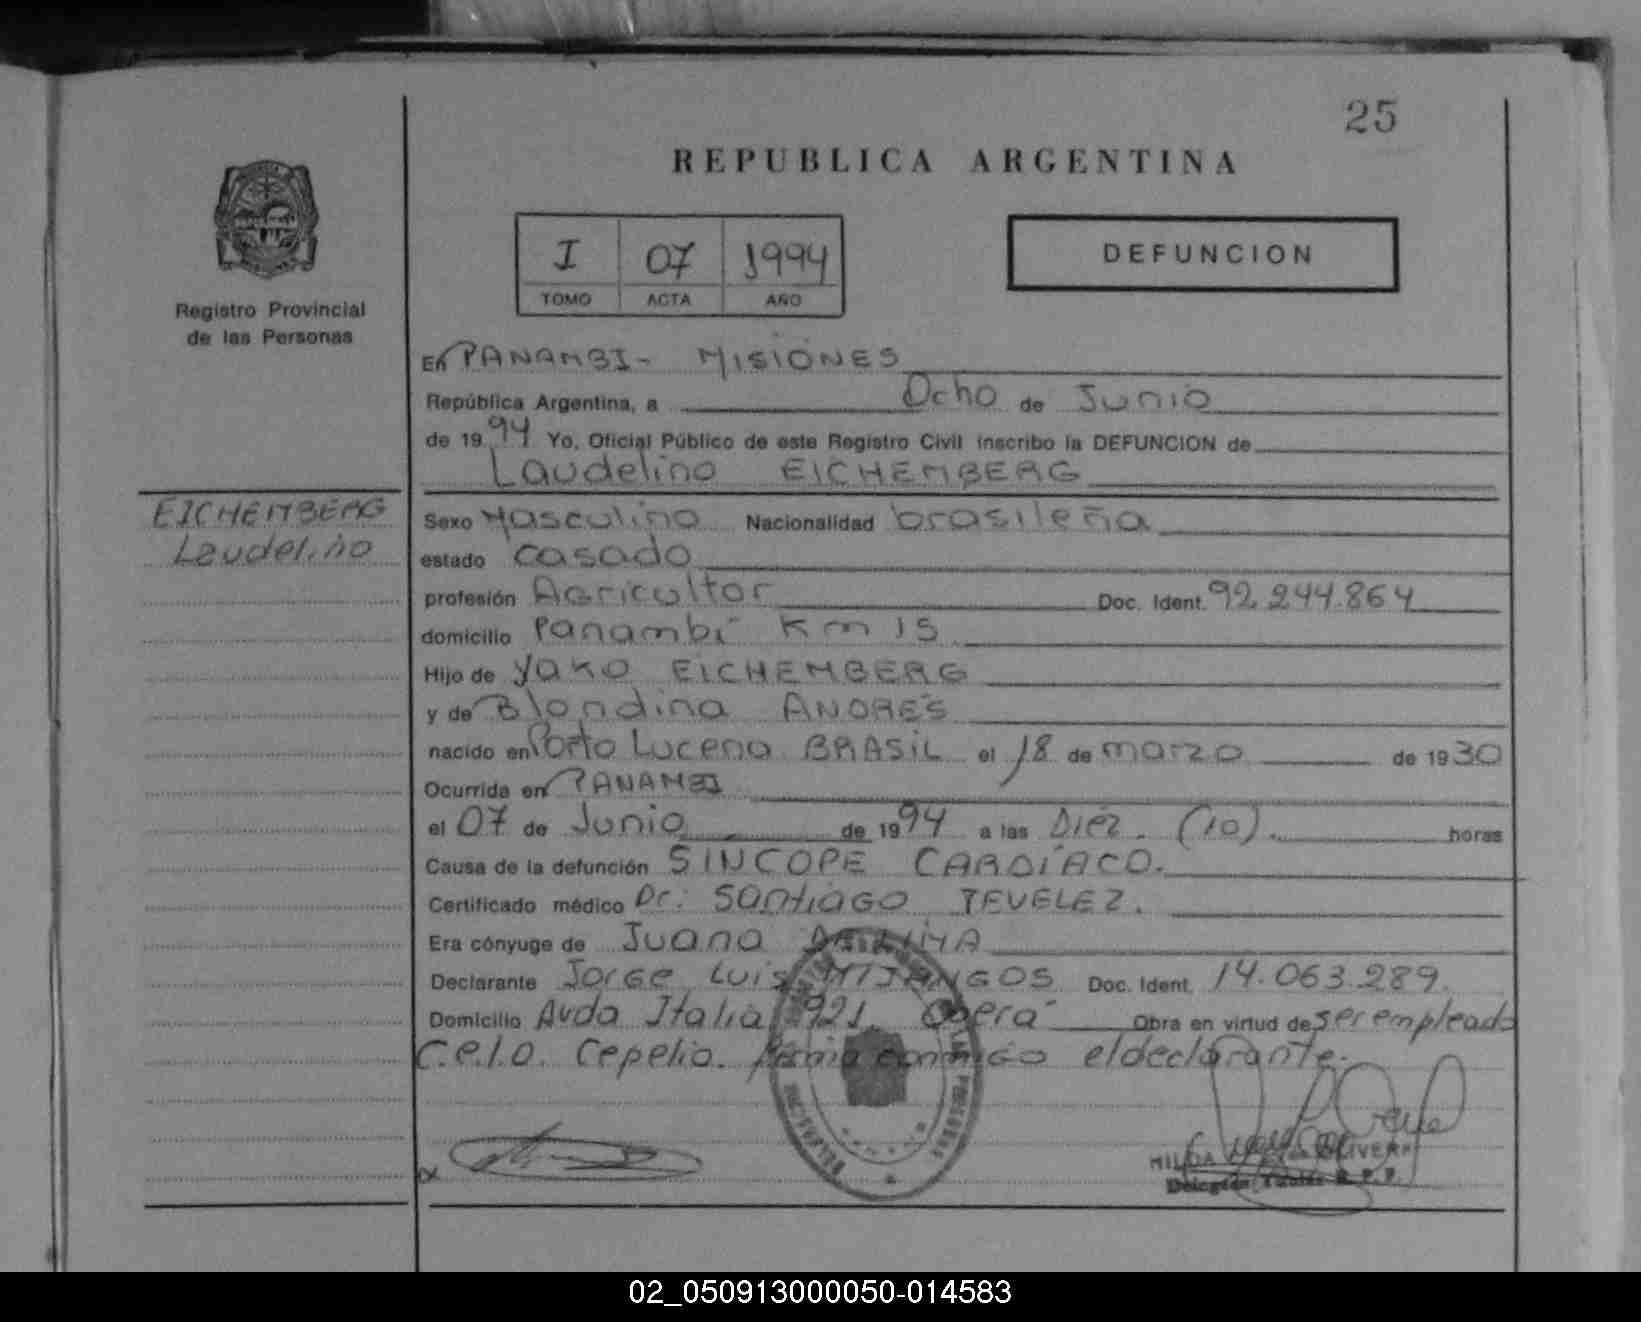 25
REPUBLICA ARGENTINA
I 07 1994
TOMO ACTA AÑO
DEFUNCION
Registro Provincial
de las Personas
En PANAMBI - MISIONES
República Argentina, a Ocho de Junio
de 1994 Yo, Oficial Público de este Registro Civil inscribo la DEFUNCION de
Laudelino EICHEMBERG
EICHEMBERG
Laudelino
Sexo Masculino Nacionalidad brasileña
estado casado
profesión Agricultor Doc. Ident. 92.244.864
domicilio Panambí Km 15
Hijo de Yako EICHEMBERG
y de Blondina ANDRES
nacido en Porto Lucena BRASIL el 18 de marzo de 1930
Ocurrida en PANAMBI
el 07 de Junio de 1994 a las Diez. (10). horas
Causa de la defunción SINCOPE CARDÍACO.
Certificado médico Dr: Santiago TEVELEZ.
Era cónyuge de Juana
Declarante Jorge Luis MIJANGOS Doc. Ident. 14.063.289.
Domicilio Avda Italia 921 Oberá Obra en virtud de ser empleado
C.e.l.o. Cepelio. firma conmigo el declarante.
HILDA OLIVERA
Delegada Titular R.P.P.
02_050913000050-014583